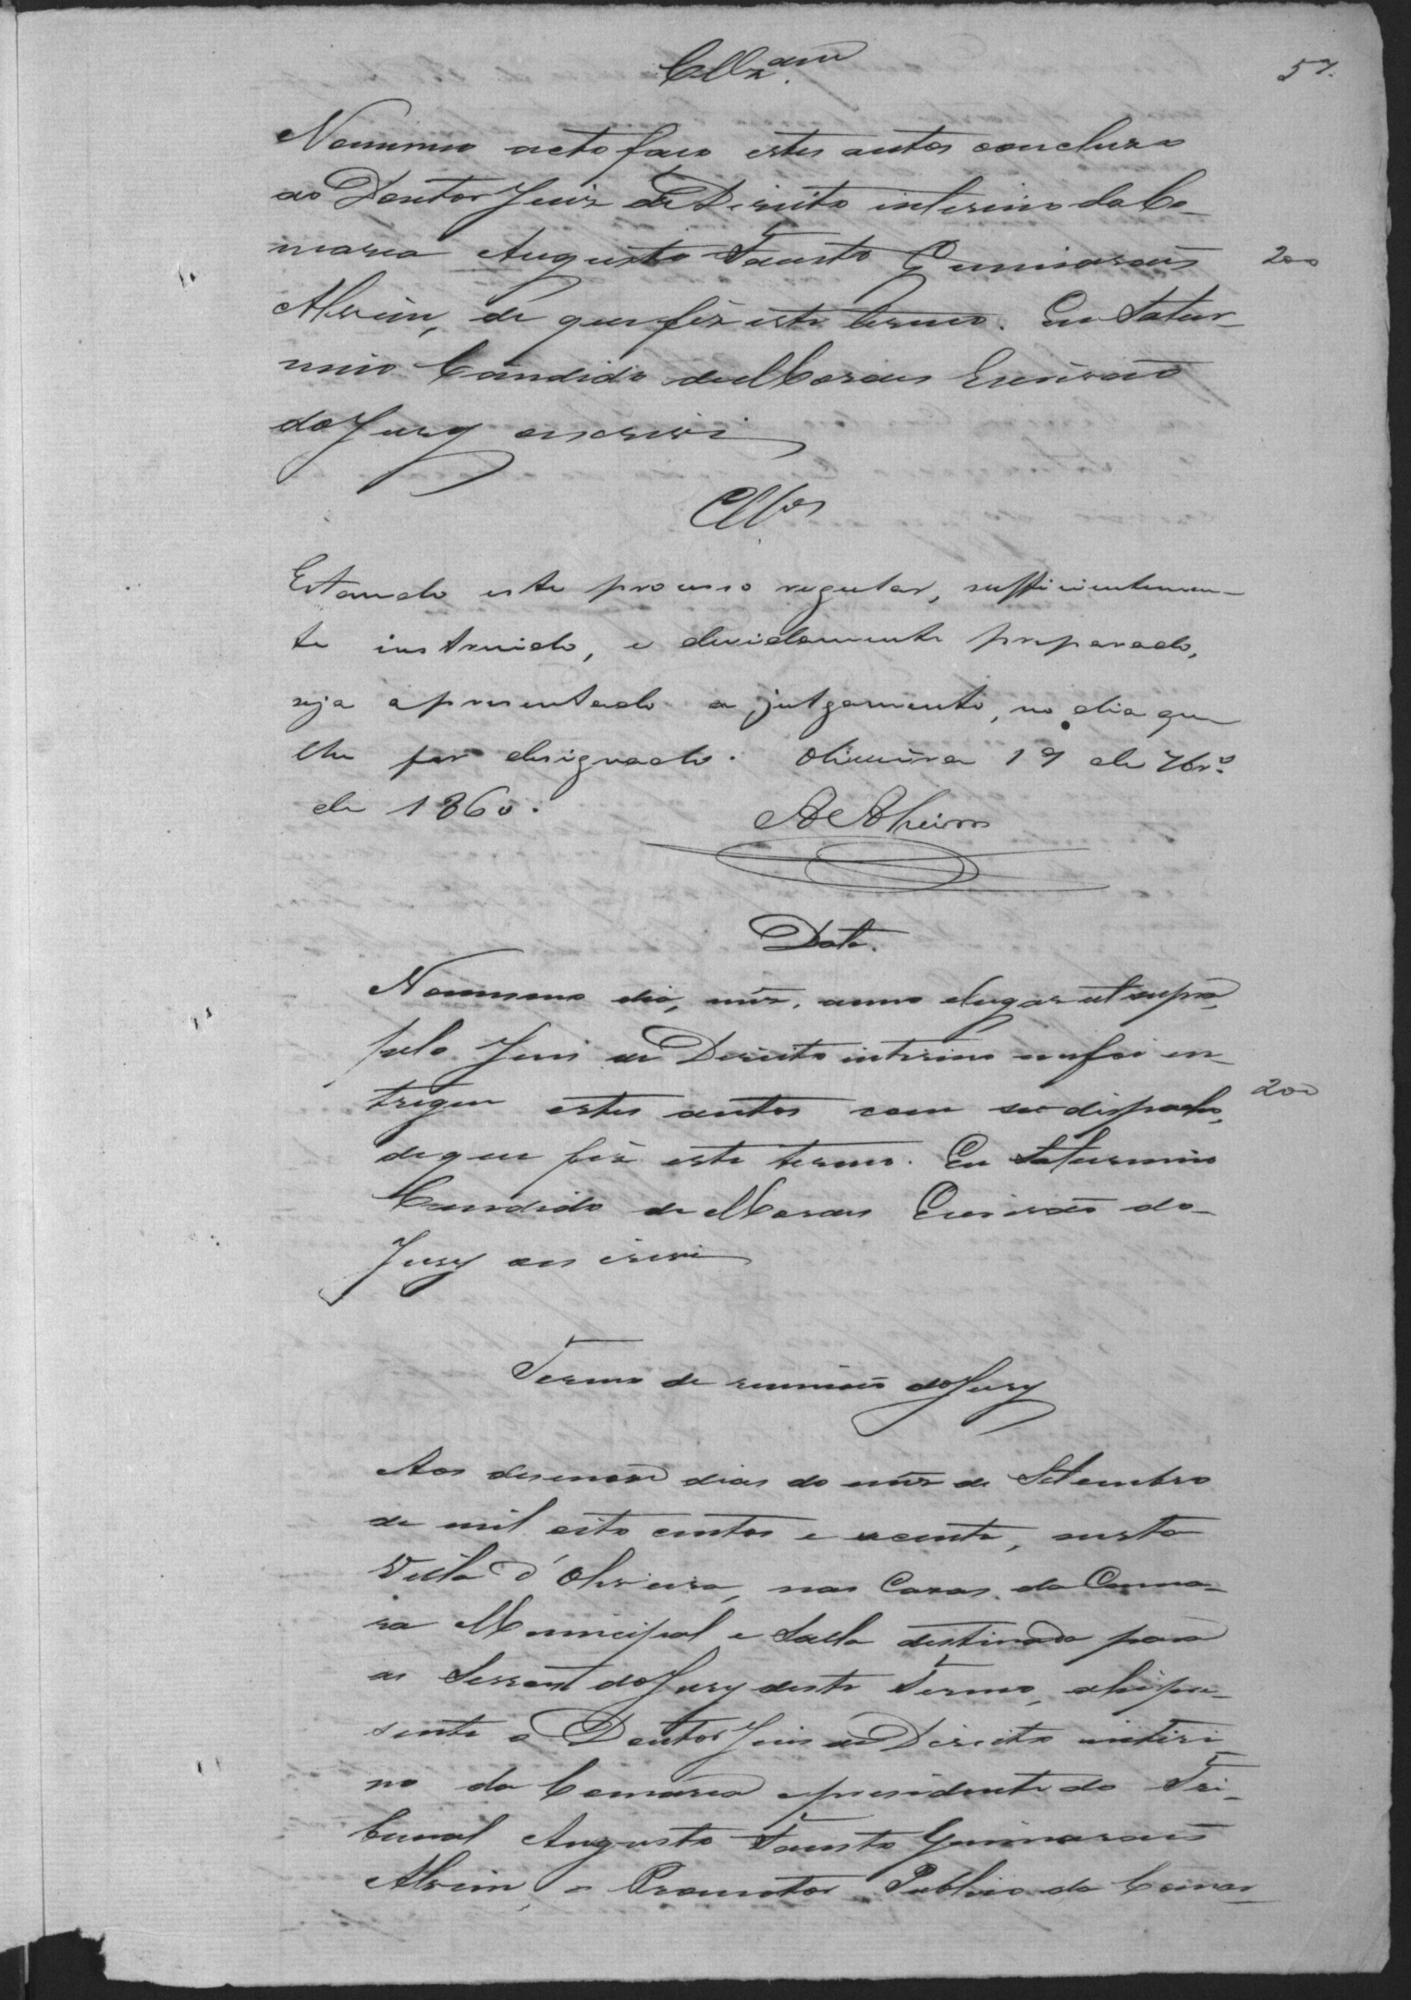 57.
Cllzam
No mesmo acto faço estes autos concluzos
ao Doutor Juiz de Direito interino da Co-
marca Augusto Fausto Guimaraẽs
200
Alvim, de que fiz este termo. Eu Satur-
nino Candido de Moraes Escrivaõ
do Jury escrevi
Cllos
Estando este processo regular, sufficientemen-
te instruido, e devidamente preparado,
seja apresentado a julgamento, no dia que
lhe for designado. Oliveira 19 de 7br.º
de 1860.
A Alvim
Data.
No mesmo dia, mêz, anno elugar ut supra,
pelo Juis de Direito interino me foi en-
tregue estes autos com seo dispacho,
200
de que fiz este termo. Eu Saturnino
Candido de Moraes Escrivaõ do
Jury escrevi
Termo de reuniaõ do Jury
Aos desenove dias do mêz de Setembro
de mil oito centos e secenta, nesta
Villa d'Oliveira, nas Cazas da Cama-
ra Municipal e Salla destinada para
as Sessoẽs do Jury deste Termo, ahi pre-
sente o Doutor Juis de Direito interi
no da Comarca e presidente do Tri-
bunal Augusto Fausto Guimaraẽs
Alvim, o Promotor Publico da Comar-